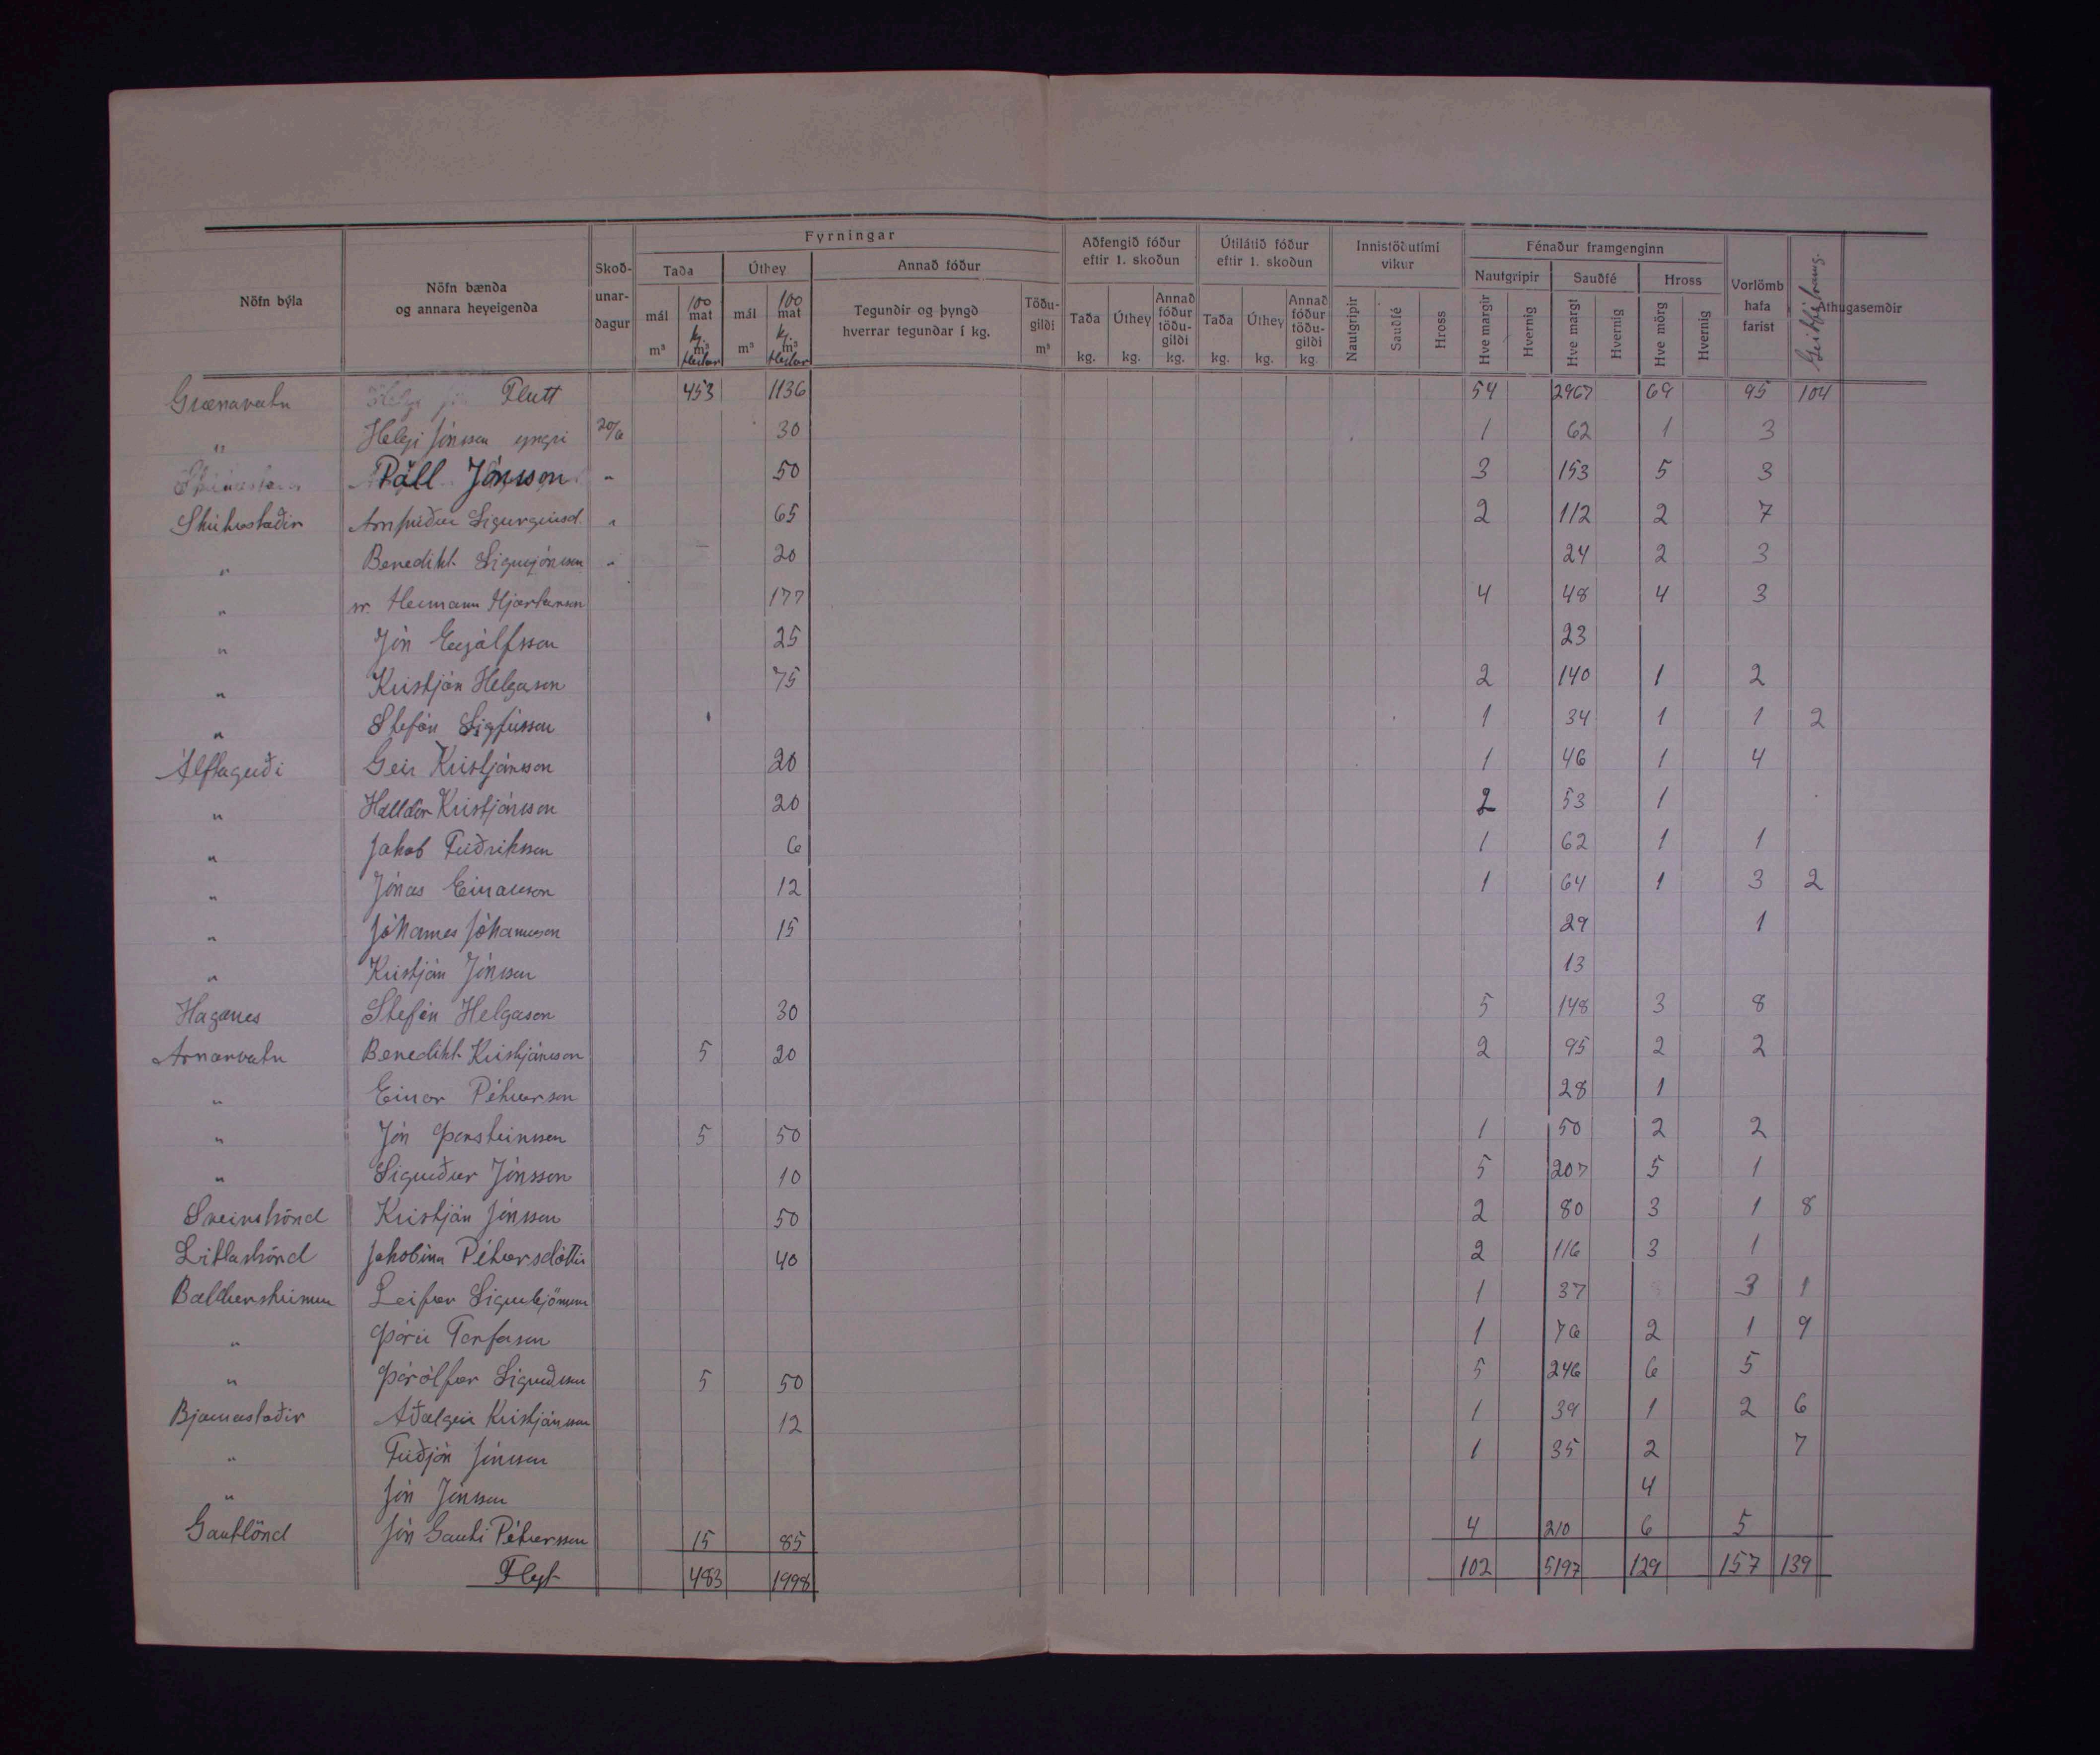 Fyrningar
Aðfengið fóður eftir 1. skoðun
Útilátið fóður eftir 1. skoðun
Innistöðutími vikur
Fénaður framgenginn
Nöfn býla
Nöfn bænda og annara heyeigenda
Skoðunardagur
Taða
Úthey
Annað fóður
Nautgripir
Sauðfé
Hross
Vorlömb hafa farist
Athugasemdir
mál m³
100 mat kg. m³ Hestar
mál m³
100 mat kg. m³ Hestar
Tegundir og þyngd hverrar tegundar í kg.
Töðugildi m³
Taða kg.
Úthey kg.
Annað fóður töðugildi kg.
Taða kg.
Úthey kg.
Annað fóður töðugildi kg.
Nautgripir
Sauðfé
Hross
Hve margir
Hvernig
Hve margt
Hvernig
Hve mörg
Hvernig
Grænavatn Flutt 453 1136 54 2967 69 95 104
" Helgi Jónsson yngri 20/6 30 1 62 1 3
Páll Jónsson " 50 3 153 5 3
Skútustaðir Arnfríður Sigurgeirsd. " 65 2 112 2 7
" Benedikt Sigurjónsson " 20 24 2 3
" sr. Hermann Hjartarson 177 4 48 4 3
" Jón Eyjólfsson 25 23
" Kristján Helgason 75 2 140 1 2
" Stefán Sigfússon 1 34 1 1 2
Álftagerði Geir Kristjánsson 20 1 46 1 4
" Halldór Kristjánsson 20 2 53 1
" Jakob Friðriksson 6 1 62 1 1
" Jónas Einarsson 12 1 64 1 3 2
" Jóhannes Jóhannesson 15 29 1
" Kristján Jónsson 13
Haganes Stefán Helgason 30 5 148 3 8
Arnarvatn Benedikt Kristjánsson 5 20 2 95 2 2
" Einar Pétursson 28 1
" Jón Þorsteinsson 5 50 1 50 2 2
" Sigurður Jónsson 10 5 207 5 1
Sveinströnd Kristján Jónsson 50 2 80 3 1 8
Litlaströnd Jakobína Pétursdóttir 40 2 116 3 1
Baldursheimur Leifur Sigurbjörnsson 1 37 3 1
" Þórir Torfason 1 76 2 1 9
" Þórólfur Sigurðsson 5 50 5 246 6 5
Bjarnastaðir Aðalgeir Kristjánsson 12 1 39 1 2 6
" Friðjón Jónsson 1 35 2 7
" Jón Jónsson 4
Gautlönd Jón Gauti Pétursson 15 85 4 210 6 5
Flyt 483 1998 102 5197 129 157 139